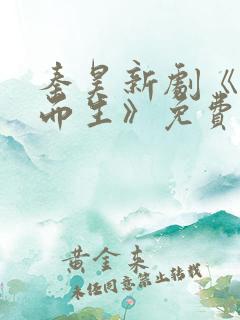 秦昊新劇《
而生》免費
黄金来
未经同意禁止转载